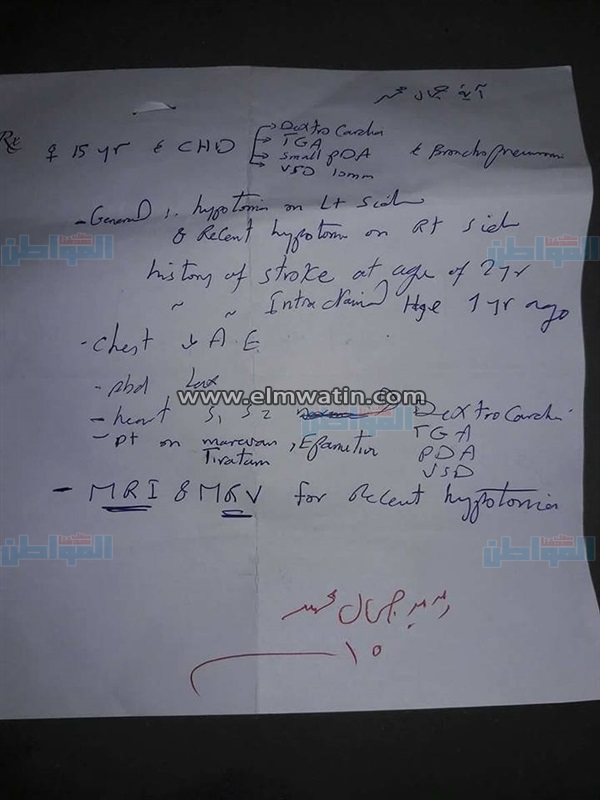 آية جمال محمد
Rx ♀ 15 yr c CHD → Dextro Cardia c Broncho pneumonia
→ TGA
→ small PDA
→ VSD 10mm
- General :. hypotonia on Lt side
& Recent hypotonia on Rt side
history of stroke at age of 2 yr
~ ~ Intra Hge 1 yr ago
- chest ↓ A.E.
- Abd Lax
- heart S1 S2 Dextro Cardia
TGA
- pt on marevan, Epanutin PDA
Tiratam VSD
- MRI & MRV for Recent hypotonia
جمال محمد
١٥
المواطن
www.elmwatin.com